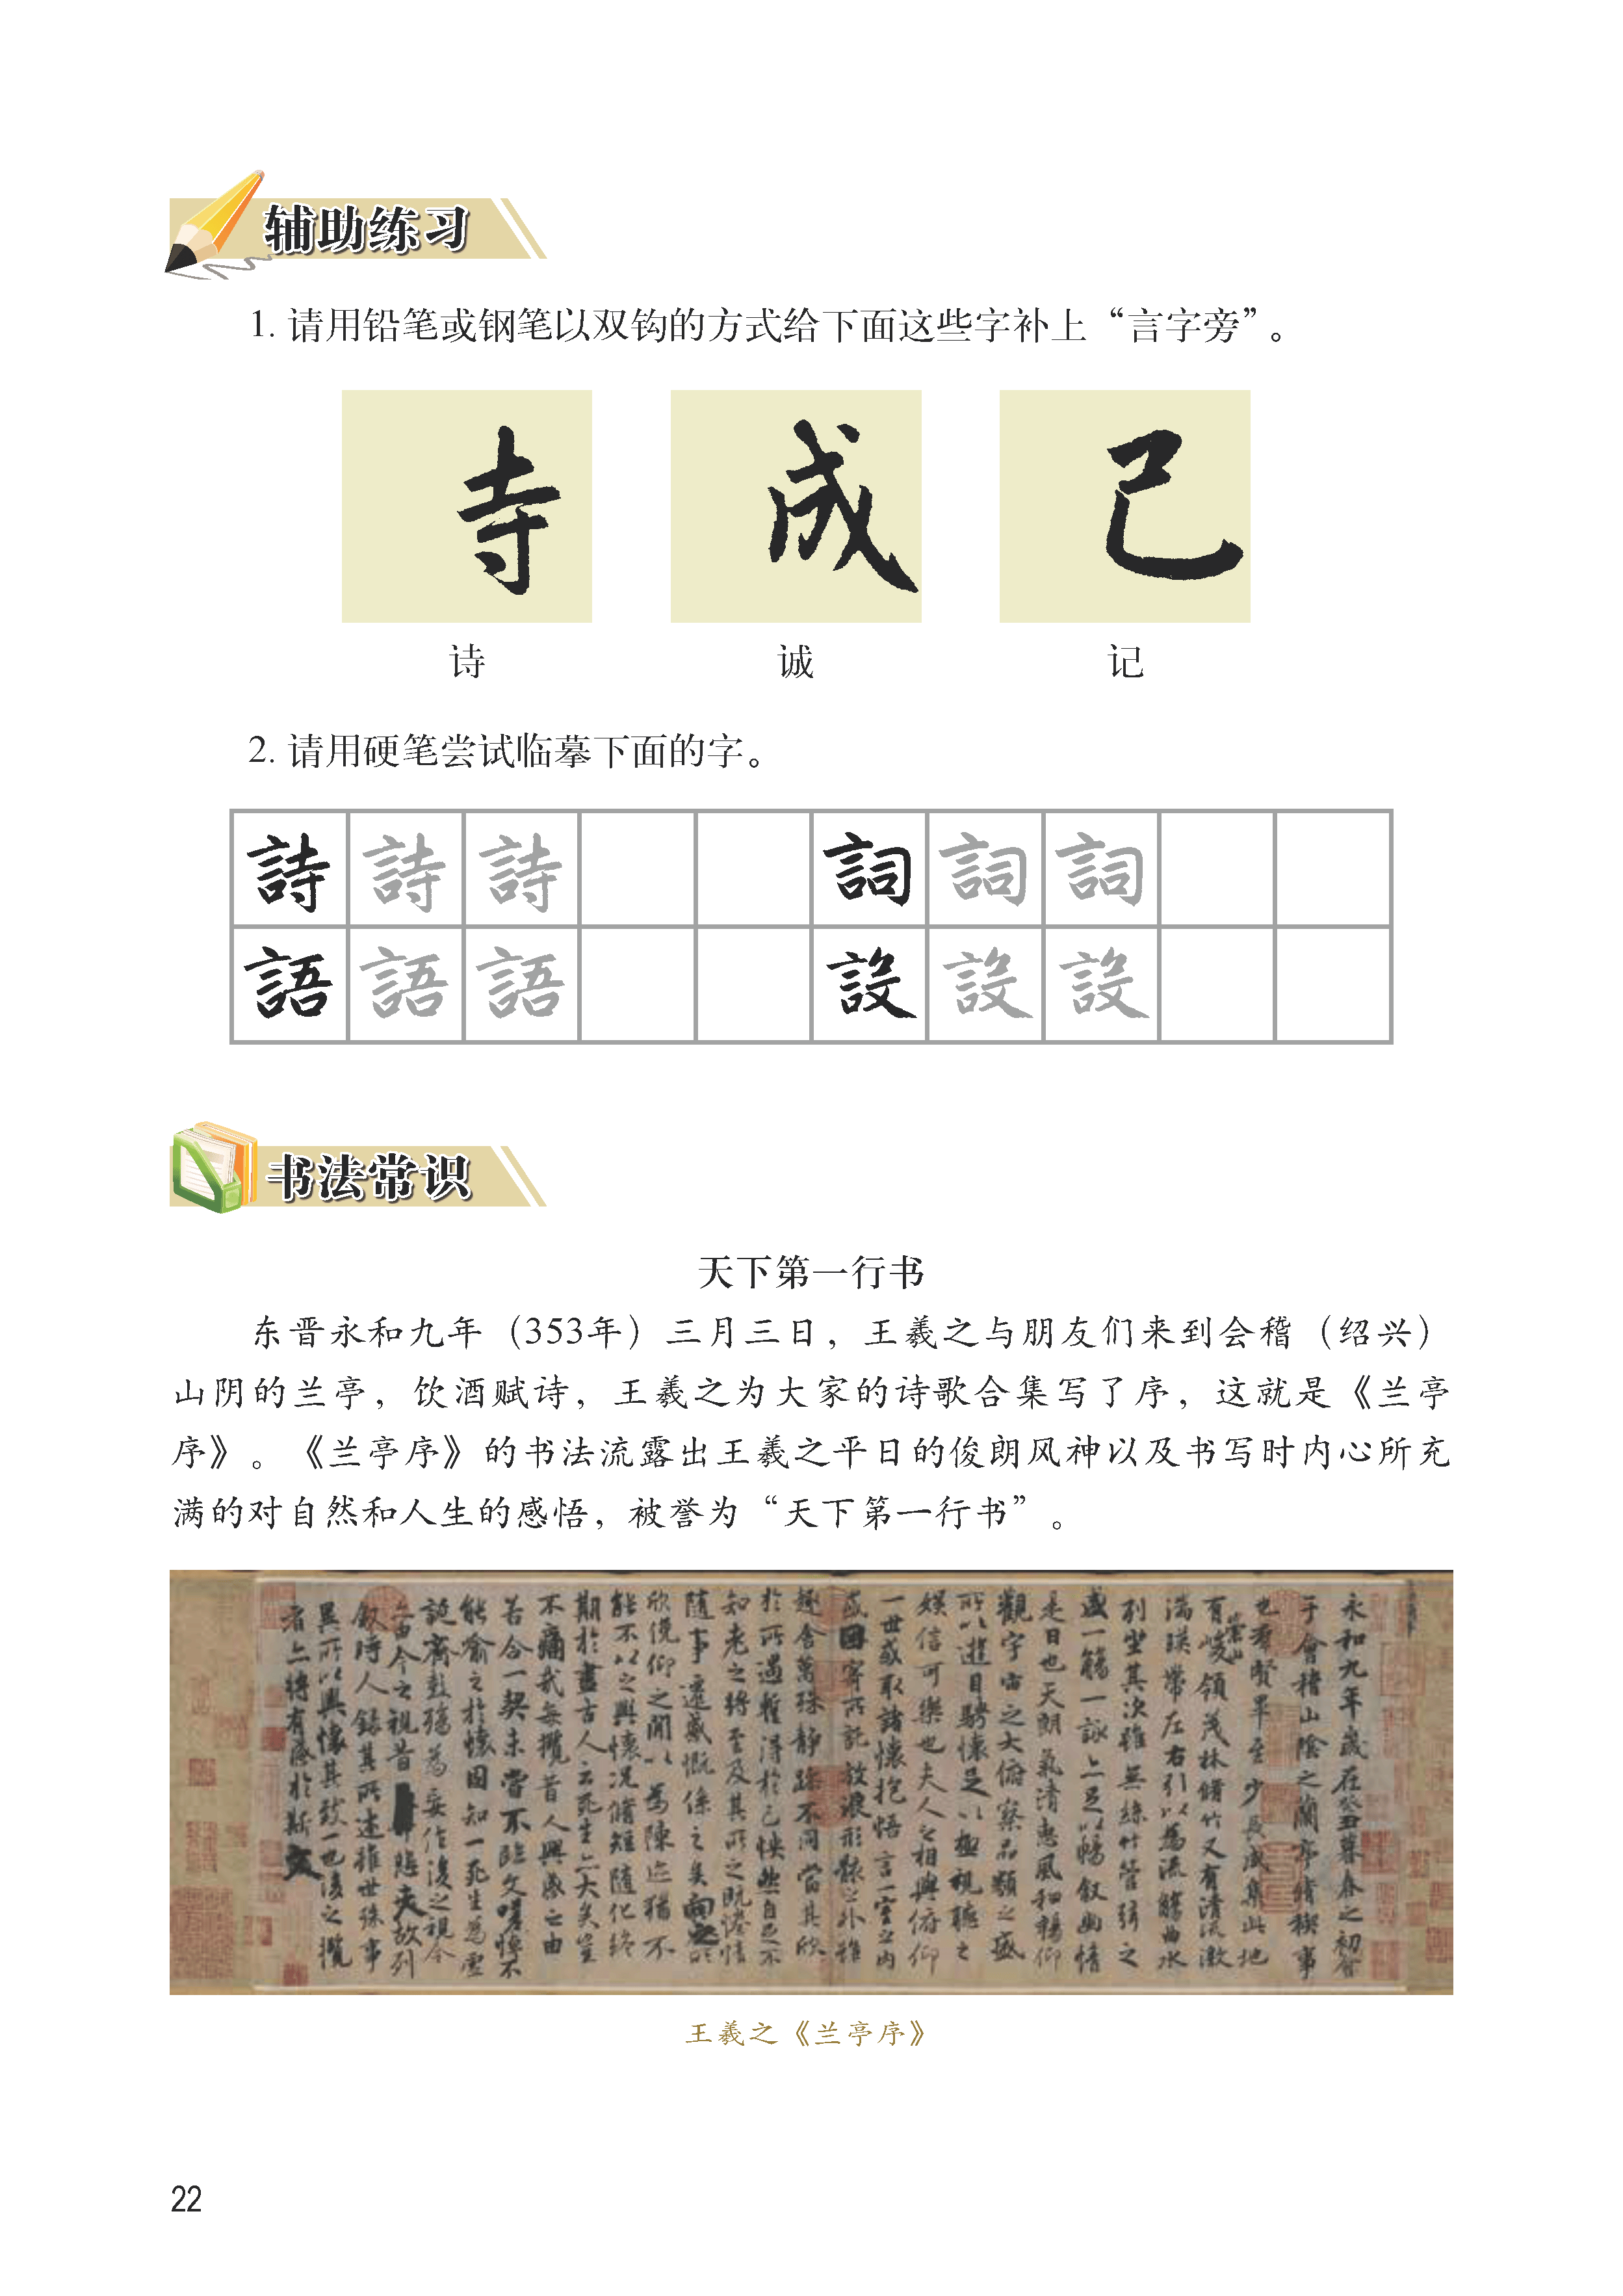 辅助练习
1. 请用铅笔或钢笔以双钩的方式给下面这些字补上“言字旁”。
寺 成 己
诗 诚 记
2. 请用硬笔尝试临摹下面的字。
詩 詩 詩 詞 詞 詞
語 語 語 設 設 設
书法常识
天下第一行书
东晋永和九年（353年）三月三日，王羲之与朋友们来到会稽（绍兴）
山阴的兰亭，饮酒赋诗，王羲之为大家的诗歌合集写了序，这就是《兰亭
序》。《兰亭序》的书法流露出王羲之平日的俊朗风神以及书写时内心所充
满的对自然和人生的感悟，被誉为“天下第一行书”。
永和九年歲在癸丑暮春之初會
于會稽山陰之蘭亭脩禊事
也羣賢畢至少長咸集此地
有崇山峻領茂林脩竹又有清流激
湍暎帶左右引以為流觴曲水
列坐其次雖無絲竹管弦之
盛一觴一詠亦足以暢敘幽情
是日也天朗氣清惠風和暢仰
觀宇宙之大俯察品類之盛
所以遊目騁懷足以極視聽之
娛信可樂也夫人之相與俯仰
一世或取諸懷抱悟言一室之內
或因寄所託放浪形骸之外雖
趣舍萬殊靜躁不同當其欣
於所遇暫得於己快然自足不
知老之將至及其所之既惓情
隨事遷感慨係之矣向之所
欣俛仰之閒以為陳迹猶不
能不以之興懷況脩短隨化終
期於盡古人云死生亦大矣豈
不痛哉每攬昔人興感之由
若合一契未嘗不臨文嗟悼不
能喻之於懷固知一死生為虛
誕齊彭殤為妄作後之視今
亦由今之視昔悲夫故列
敘時人錄其所述雖世殊事
異所以興懷其致一也後之攬
者亦將有感於斯文
王羲之《兰亭序》
22